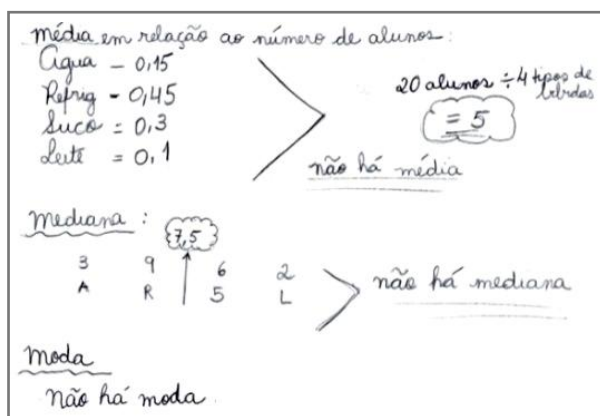 média em relação ao número de alunos:
Água - 0,15
Refrig - 0,45
Suco = 0,3
Leite = 0,1
20 alunos ÷ 4 tipos de bebidas
= 5
não há média
mediana :
7,5
3 9 6 2
A R 5 L
não há mediana
moda
não há moda.